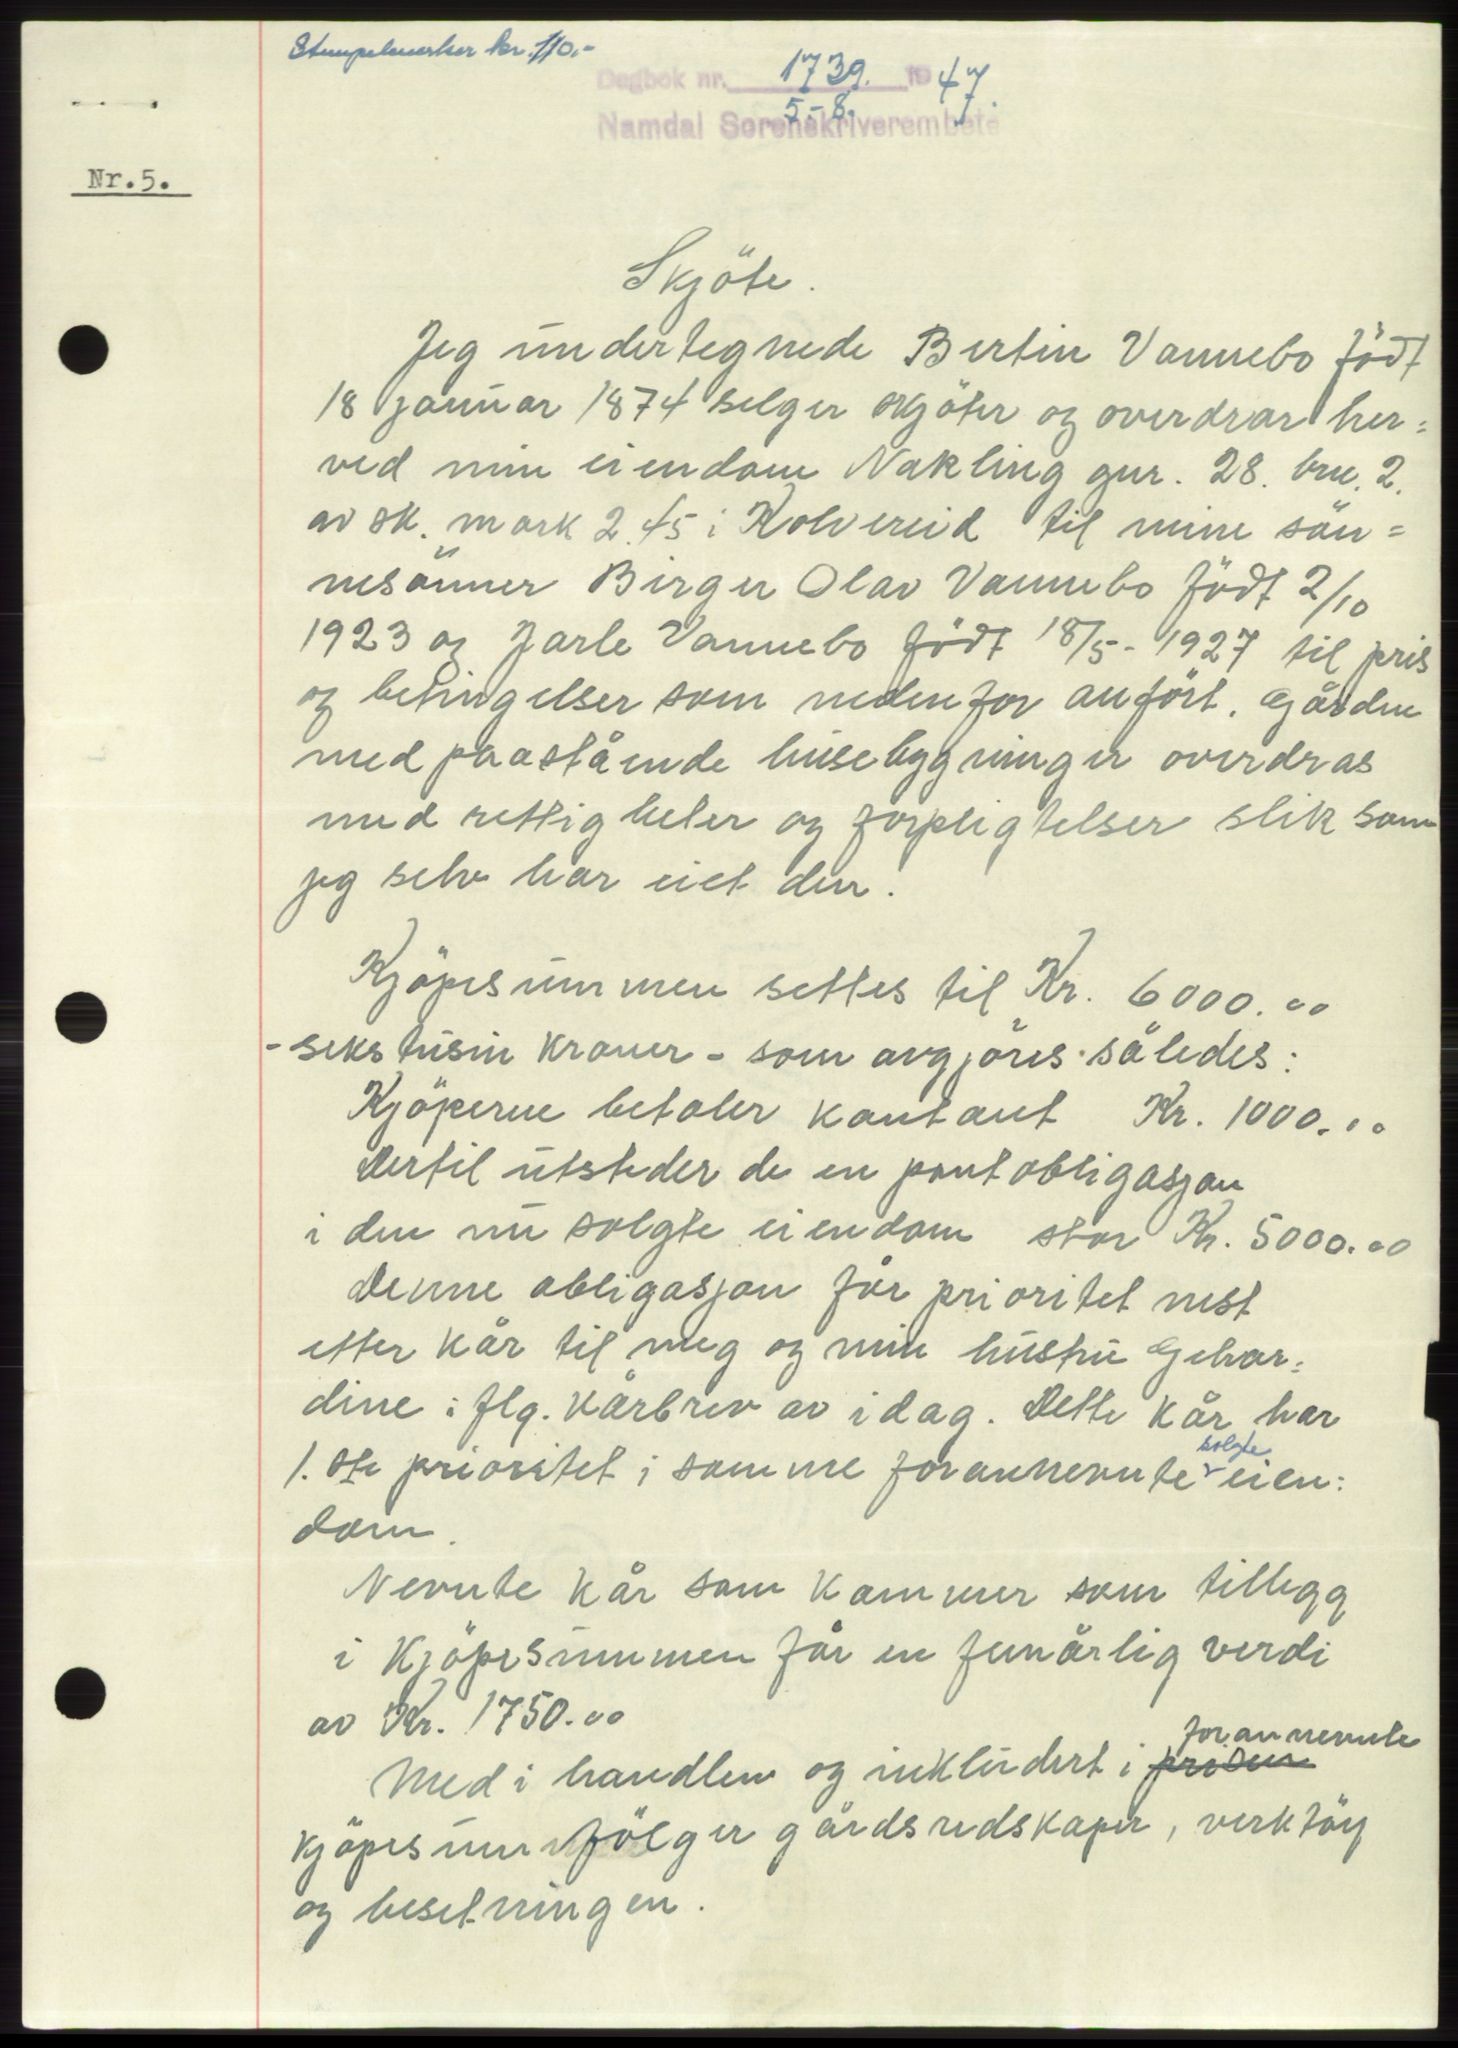 Stempelmerker kr. 110.-
Dagbok nr. 1739. 1947
5-8.
Namdal Sorenskriverembete
Nr.5.
Skjöte.
Jeg undertegnede Bertin Vannebo födt
18 januar 1874 selger skjöter og overdrar her=
ved min eiendom Nakling gnr. 28. bnr. 2.
av sk. mark 2.45 i Kolvereid til mine sön=
nesönner Birger Olav Vannebo födt 2/10
1923 og Jarle Vannebo födt 18/5- 1927 til pris
og betingelser som nedenfor anfört. Gården
med paastående husebygninger overdras
med rettigheter og forpligtelser slik som
jeg selv har eiet den.
Kjöpesummen settes til Kr. 6000.00
- sekstusin kroner - som avgjöres således:
Kjöperne betaler kontant Kr. 1000.00
Dertil utsteder de en pantobligasjon
i den nu solgte eiendom stor Kr. 5000.00
Denne obligasjon får prioritet nest
etter kår til meg og min hustru Gehar=
dine i flg. kårbrev av idag. Dette kår har
1.ste prioritet i samme forannevnte solgte eien=
dom.
Nevnte kår som kommer som tillegg
i kjöpesummen får en femårlig verdi
av Kr. 1750.00
Med i handlen og inkludert i forannevnte
kjöpesum fölger gårdsredskaper, verktöy
og besetningen.